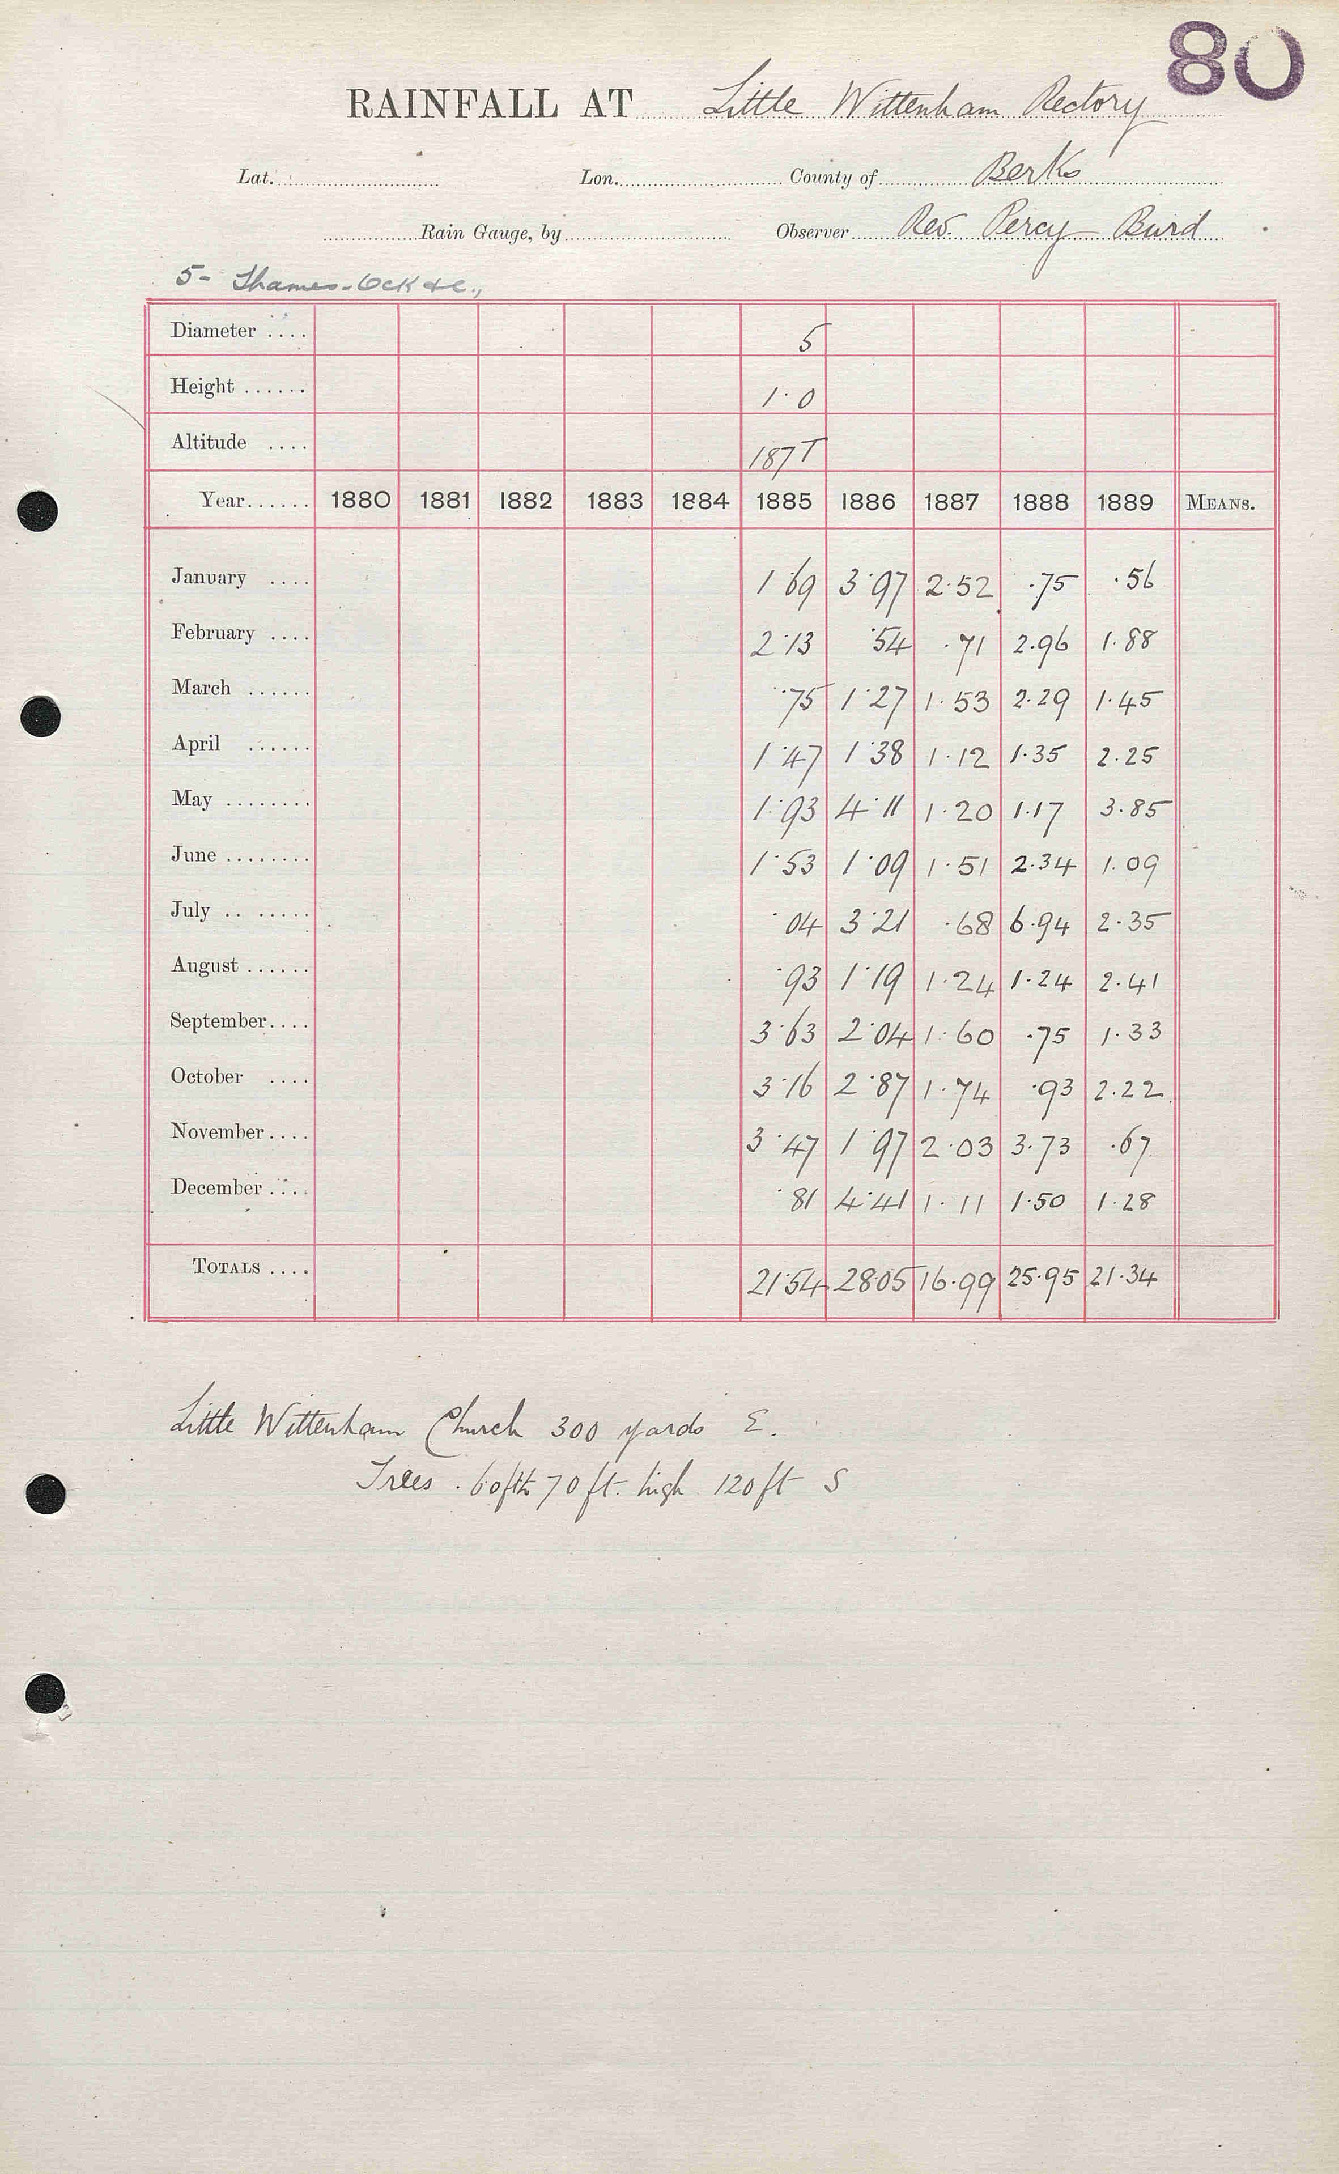 80
RAINFALL AT Little Wittenham Rectory
Lat. Lon. County of Berks
Rain Gauge, by Observer Rev. Percy Burd
5- Thames-Ock &c.,
Diameter .... 5
Height ...... 1·0
Altitude .... 187 T
Year...... 1880 1881 1882 1883 1884 1885 1886 1887 1888 1889 MEANS.
January .... 1·69 3·97 2·52 ·75 ·56
February .... 2·13 ·54 ·71 2·96 1·88
March ...... ·75 1·27 1·53 2·29 1·45
April ...... 1·47 1·38 1·12 1·35 2·25
May ........ 1·93 4·11 1·20 1·17 3·85
June ........ 1·53 1·09 1·51 2·34 1·09
July .. ..... ·04 3·21 ·68 6·94 2·35
August ...... ·93 1·19 1·24 1·24 2·41
September.... 3·63 2·04 1·60 ·75 1·33
October .... 3·16 2·87 1·74 ·93 2·22
November.... 3·47 1·97 2·03 3·73 ·67
December .... ·81 4·41 1·11 1·50 1·28
TOTALS .... 21·54 28·05 16·99 25·95 21·34
Little Wittenham Church 300 yards E.
Trees 60 ft to 70 ft. high 120 ft S